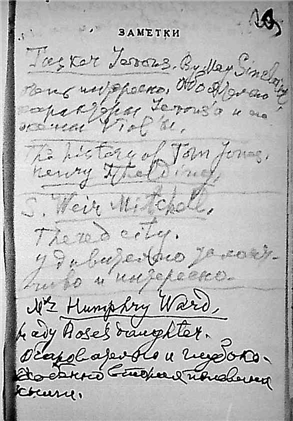 ЗАМЕТКИ
Tusker Jevons. By May Sinclair,
очень интересно. Особенно
характеры Jevons'a и его
жены Viol'ы.
The history of Tom Jones.
Henry Fielding
S. Weir Mitchell.
The red city.
удивительно талант-
ливо и интересно.
Mrs Humphry Ward,
Lady Rose's daughter.
Очаровательно и глубоко.
особенно вторая половина
книги.